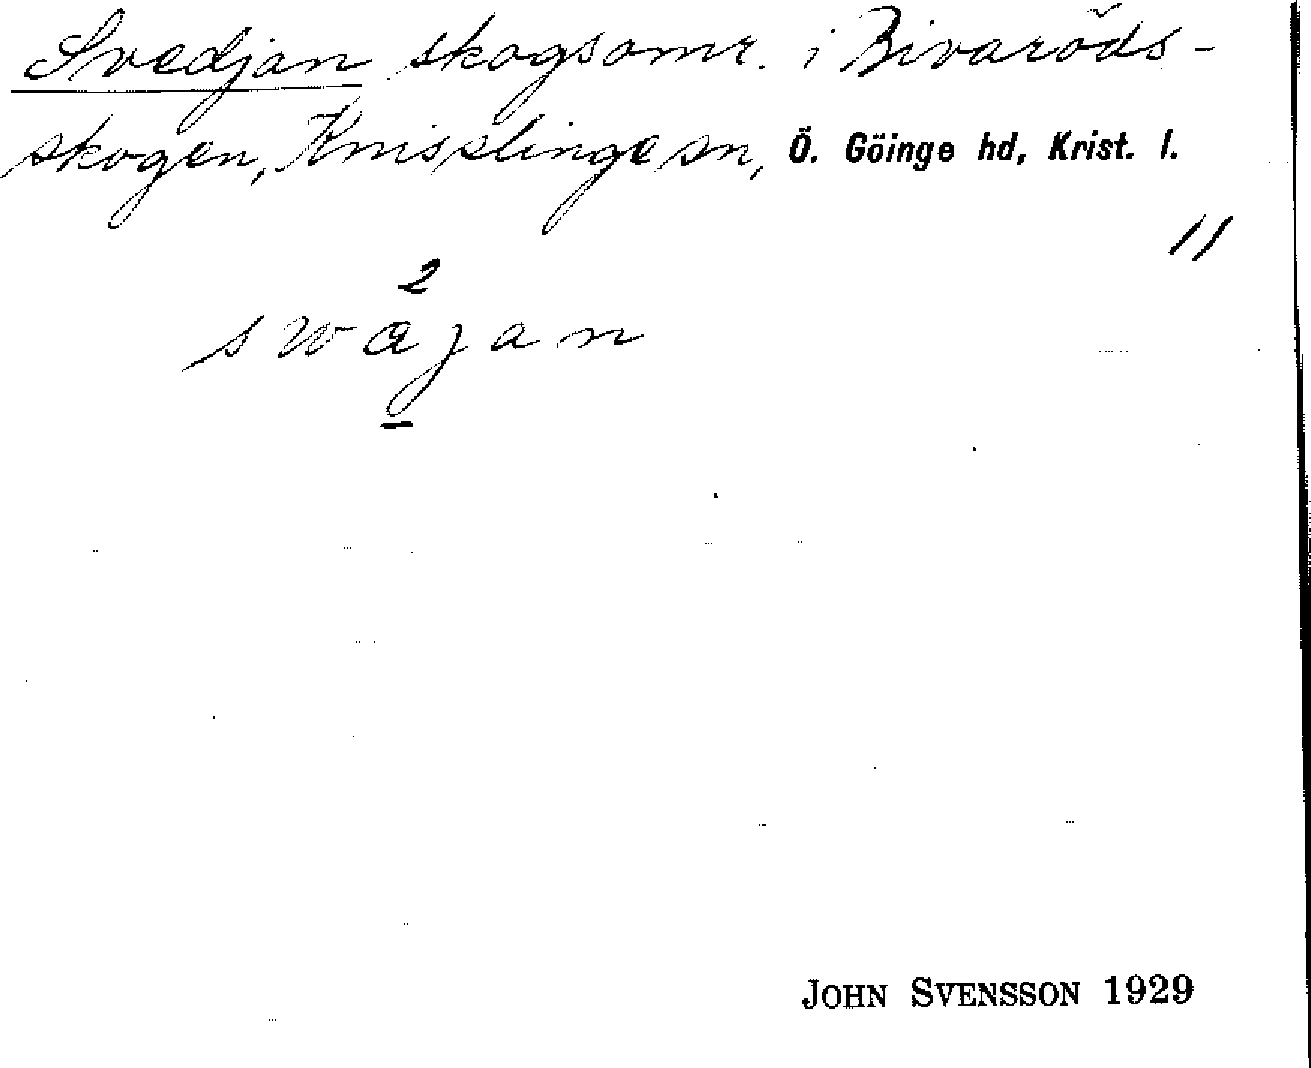 Svedjan skogsomr. i Bivaröds-
skogen, Knisslinge sn, Ö. Göinge hd, Krist. l.
11
2
swajan
JOHN SVENSSON 1929